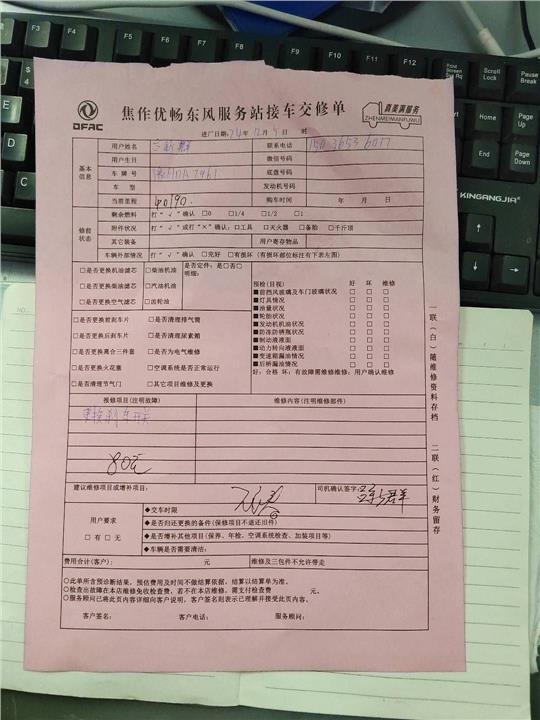 F3 F4 F5 F6 F7 F8 F9 F10 F11 F12
Scroll Lock
Pause Break
Insert
Home
Page Up
Delete
End
Page Down
KINGANGJIA
DFAC
焦作优畅东风服务站接车交修单
真美满服务
ZHENMEIMANFUWU
进厂日期: 年 月 日 时
基本信息
用户姓名
联系电话
用户生日
微信号码
车牌号
底盘号
车型
发动机号码
当前里程 40190.
购车时间 年 月 日
修前状态
剩余燃料 打“√”确认 □0 □1/4 □1/2 □1
附件状况 打“√”或打“×”确认:□工具 □灭火器 □备胎 □千斤顶
其它装备
用户寄存物品
车辆外部情况 打“√”确认 □完好 □有损坏(有损坏部位标注有下表左图)
□是否更换机油滤芯 □柴油机油
□是否更换柴油滤芯 □汽油机油
□是否更换空气滤芯 □齿轮油
是否定件:是□否□
明细:
□是否更换前刹车片 □是否清理排气筒
□是否更换后刹车片 □是否清理尿素箱
□是否更换离合三件套 □是否为电气维修
□是否更换火花塞 □空调系统是否正常运行
□是否清理节气门 □其它项目维修及更换
预检(目视) 好 坏 维修
■前挡风玻璃及车门玻璃状况 □ □ □
■灯具情况 □ □ □
■油量状况 □ □ □
■轮胎状况 □ □ □
■发动机机油情况 □ □ □
■防冻防锈瓶状况 □ □ □
■制动液液面 □ □ □
■动力转向液液面 □ □ □
■变速箱漏油情况 □ □ □
■后桥漏油情况 □ □ □
好:合格 坏:有故障需维修维修:用户确认维修
报修项目(注明故障)
维修内容(注明维修部件)
更换刹车开关
80元
建议维修项目或增补项目:
司机确认签字:
用户要求
□有 □无
◆交车时限
◆是否归还更换的备件(保修项目不退旧件)
◆是否增补其他项目(保养、年检、空调系统检查、加装项目等)
◆车辆是否需要清洁:
费用合计(客户): 元
维修及三包件不允许带走
○此单所含预诊断结果,预估费用及时间不做结算依据,结算以结算单为准。
○检查出故障在本店维修免收检查费,若不在本店维修,需支付检查费 元。
○服务顾问已将此页内容详细向客户说明,客户签名则表示已理解并接受此页内容。
客户签名: 客户电话: 服务顾问:
一联(白)随维修资料存档
二联(红)财务留存